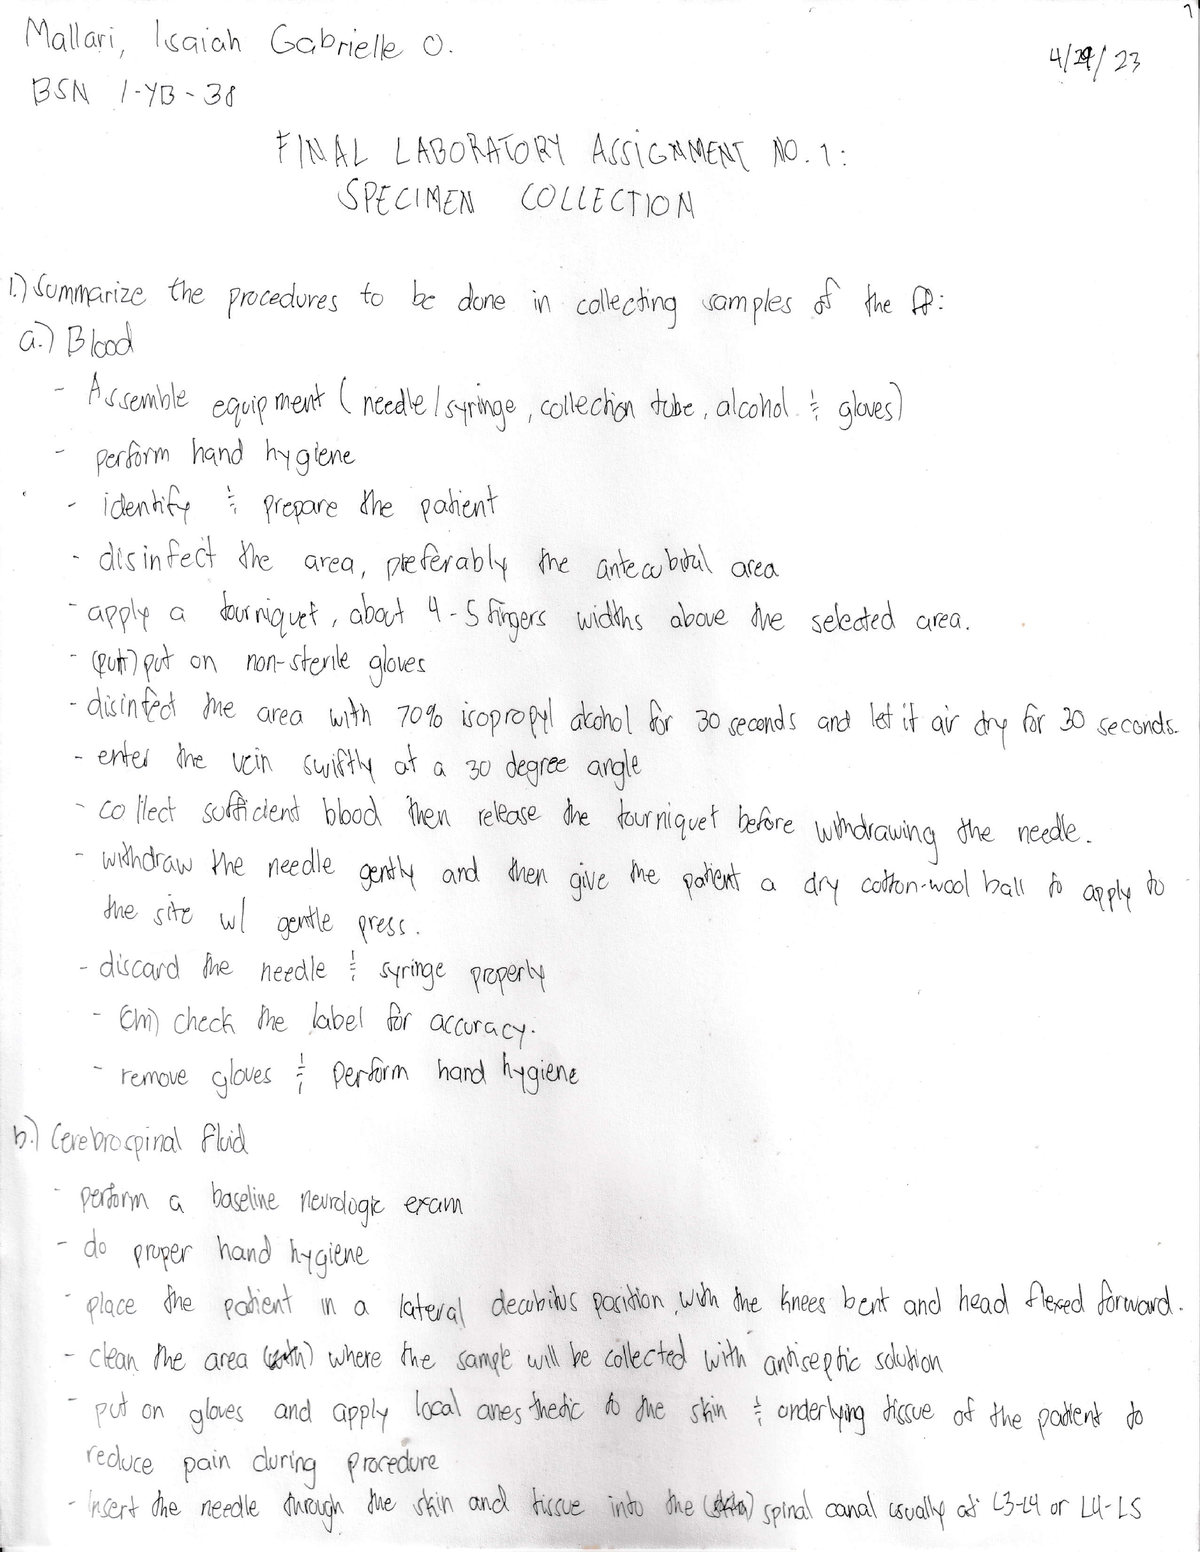 1
Mallari, Isaiah Gabrielle O.
4/29/23
BSN 1-YB-38
FINAL LABORATORY ASSIGNMENT NO. 1:
SPECIMEN COLLECTION
1.) Summarize the procedures to be done in collecting samples of the ff:
a.) Blood
- Assemble equipment (needle/syringe, collection tube, alcohol & gloves)
- perform hand hygiene
- identify & prepare the patient
- disinfect the area, preferably the antecubital area
- apply a tourniquet, about 4-5 fingers widths above the selected area.
- (put) put on non-sterile gloves
- disinfect the area with 70% isopropyl alcohol for 30 seconds and let it air dry for 30 seconds.
- enter the vein swiftly at a 30 degree angle
- collect sufficient blood then release the tourniquet before withdrawing the needle.
- withdraw the needle gently and then give the patient a dry cotton-wool ball to apply to
the site w/ gentle press.
- discard the needle & syringe properly
- check the label for accuracy.
- remove gloves & perform hand hygiene
b.) Cerebrospinal fluid
- perform a baseline neurologic exam
- do proper hand hygiene
- place the patient in a lateral decubitus position, with the knees bent and head flexed forward.
- clean the area where the sample will be collected with antiseptic solution
- put on gloves and apply local anesthetic to the skin & underlying tissue of the patient to
reduce pain during procedure
- insert the needle through the skin and tissue into the spinal canal usually at L3-L4 or L4-L5